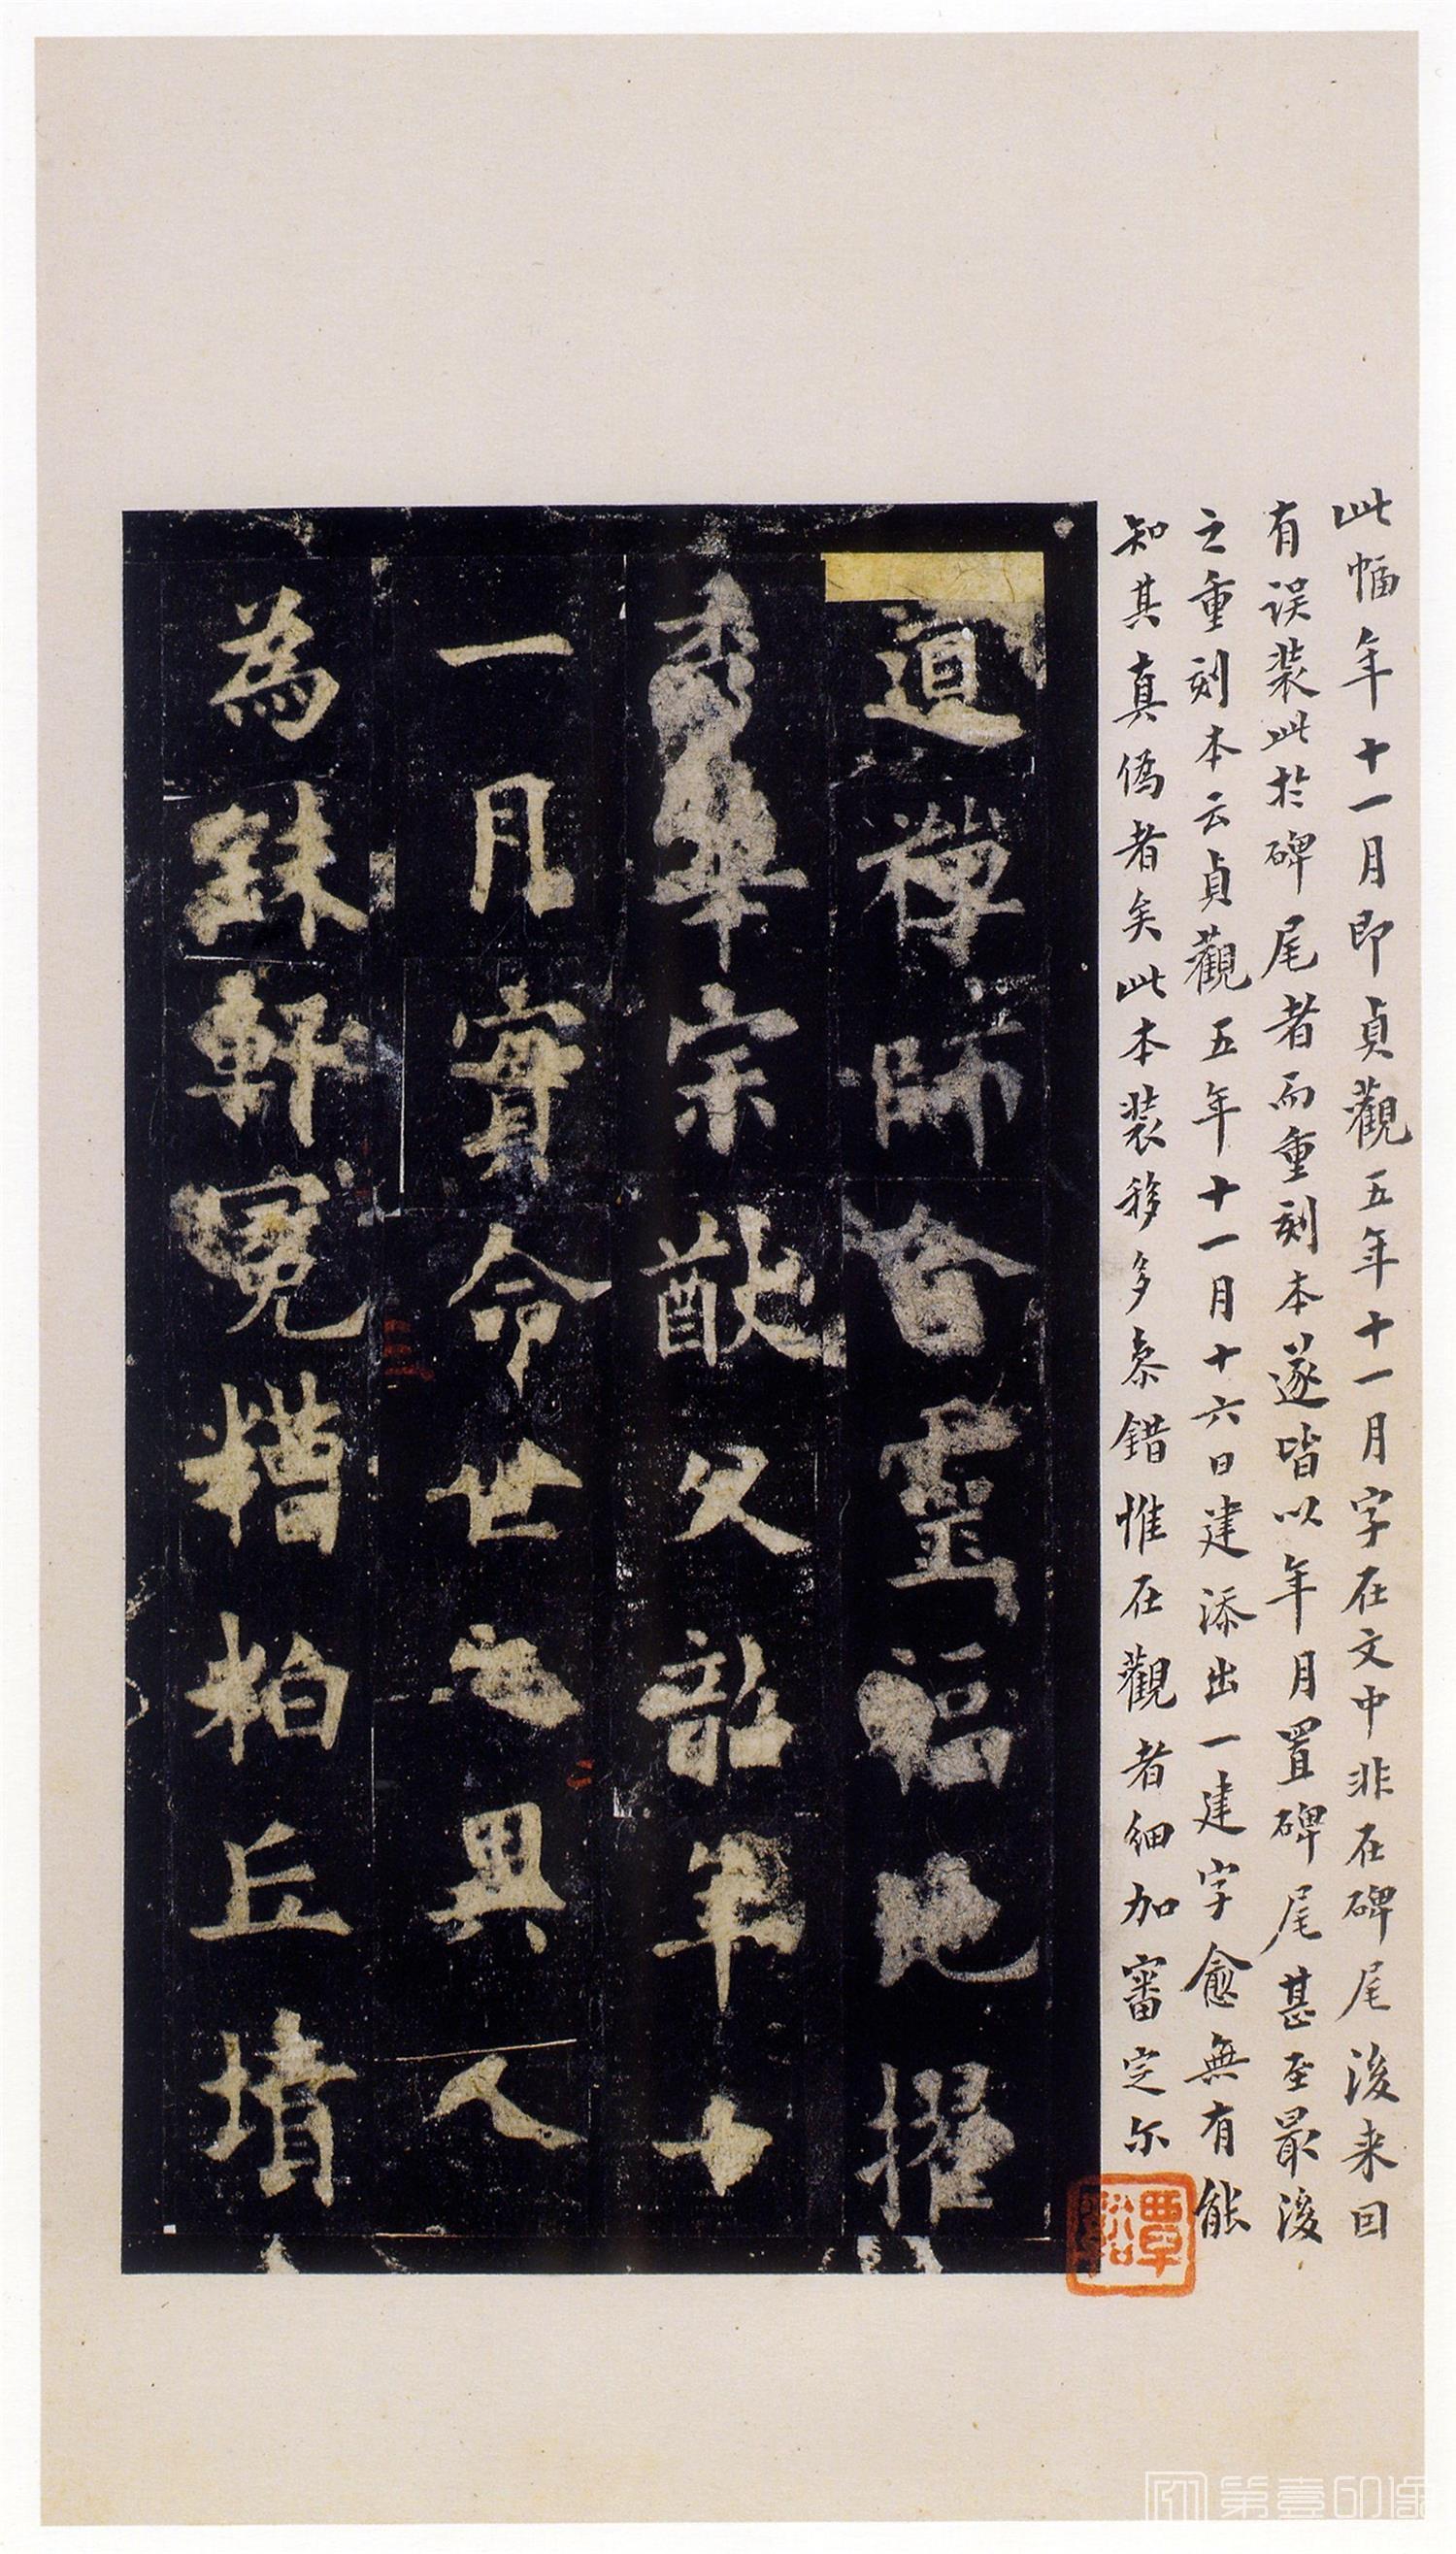 此幅年十一月即貞觀五年十一月字在文中非在碑尾後来回
有误装此於碑尾者而重刻本遂皆以年月置碑尾甚至最後
之重刻本云貞觀五年十一月十六日建添出一建字愈無有能
知其真偽者矣此本装移多紊錯惟在觀者細加審定尓
覃谿
道禪師含靈福地擢
秀華宗猷父韶年十
一月實命世之異人
為銖軒冕糟粕丘墳
三
二
第壹印象